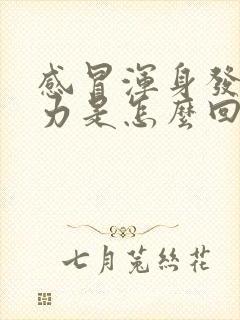 感冒渾身發
力是怎麼回
七月菟絲花